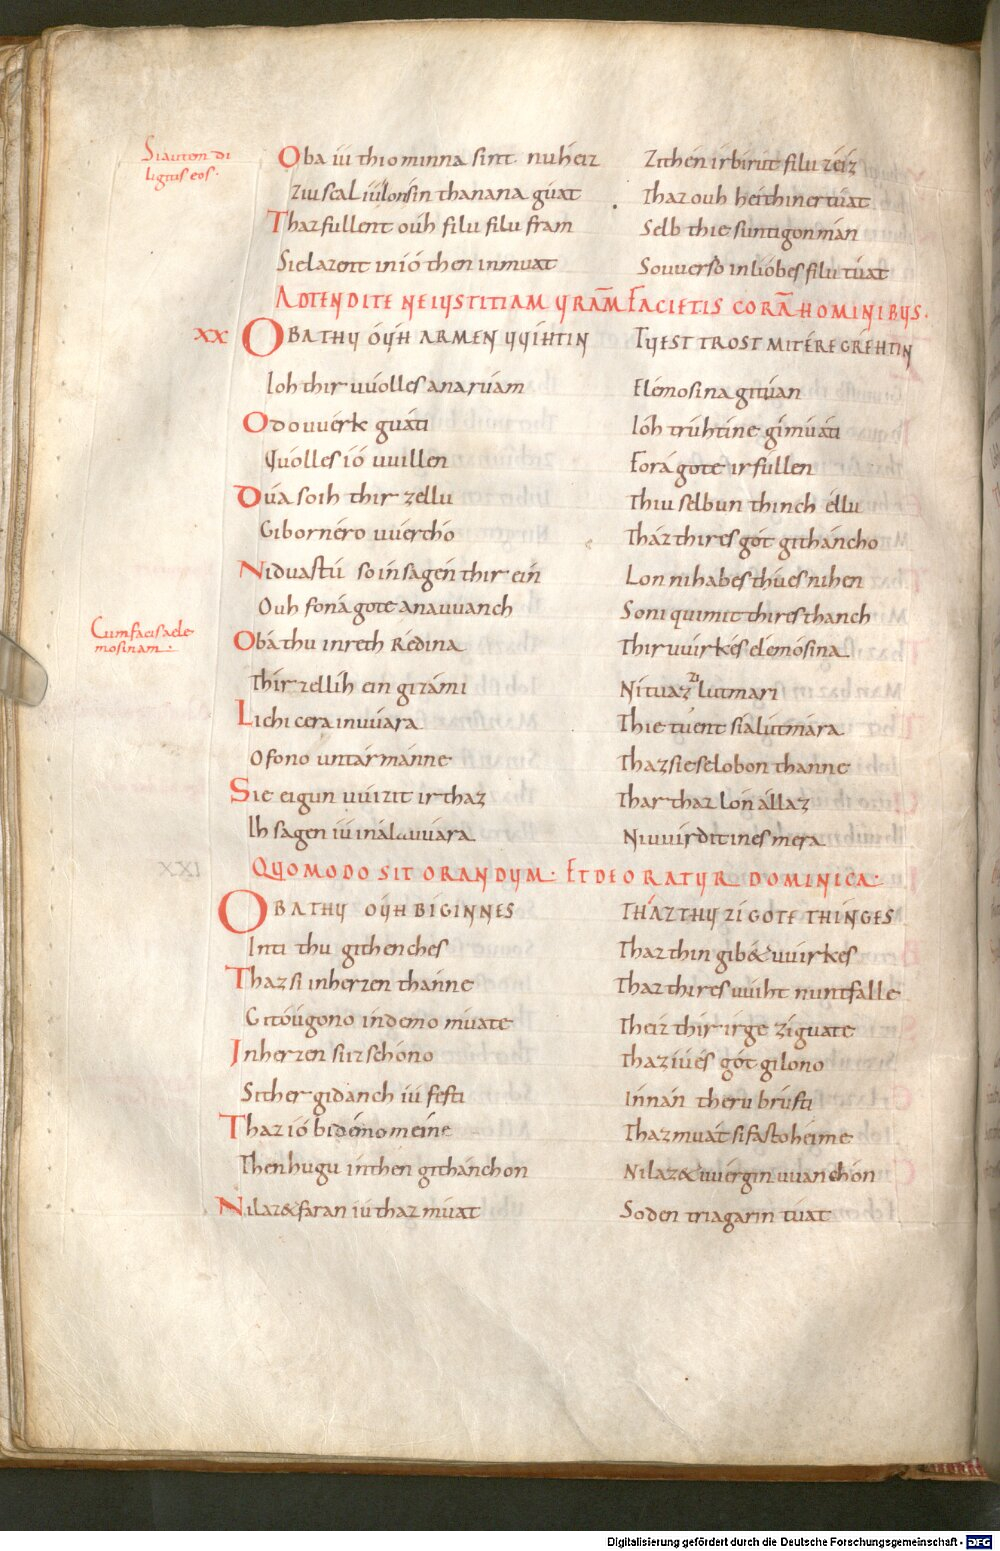 Siautem di
ligitis eos·
Oba iú thio minna sint· nuheiz Zithén irbirut filu réiz
Ziu scal iú lonsin thanana gúat Thaz ouh heithiner túat
Thaz fullent oúh filu filu fram Selb thie suntigon mán
Sie lazent in ió then inmuat So uuerso in lióbes filu túat
ADTENDITE NE IUSTITIAM URAM FACIETIS CORA HOMINIBUS·
XX OBATHU ÓUH ARMEN UUIHTIN TUEST TROST MIT ÉREGREHTIN
Ioh thir uuolles ana rúam Elémosina gitúan
Odo uuérk guati Ióh trúhtine gimúati
Quolles ió uuillen Fora gote irfullen
Dúa so ih thir zellu Thiu selbun thinch éllu
Gibornéro uuercho Tház thir es gót githáncho
Niduastú so ín sagén thir ein Lon ni habes thú es nihen
Ouh foná gote anauuanch So ni quimit thir es thanch
Cum facis aele
mosinam·:
Obá thu in reth Redina Thir uuirkés elemósina
Thir zellih ein girámi Ni tuaz zi lutmari
Lichicera in uuára Thie tuent sia lútmára
Ofono untar mánne Thaz sie se lobon thanne
Sie eigun uuizit ir thaz Thar thaz lón allaz
Ih sagen iú in álauuára Ni uuirdit ines mera
XXI QUOMODO SIT ORANDUM· ET DE ORATUR DOMINICA·
OBATHU OUH BIGINNES THÁZ THU ZI GOTE THINGES
Inti thu githenches Thaz thin gib& uuirkes
Thaz si in herzen thanne Thaz thir es uuiht nuntfalle
Gitoúgono in demo múate Theiz thir irge ziguate
In herzen siiz schóno Thaz iú es gót gilono
Sith er gidanch iú festi Innán theru brusti
Thaz ió bi démo meine Thaz muát si fasto heime
Then hugu in thén githánchon Nilaz& uuergin uuanchón
Nilaz& faran iú thaz múat So den triagarin tuat
Digitalisierung gefördert durch die Deutsche Forschungsgemeinschaft - DFG